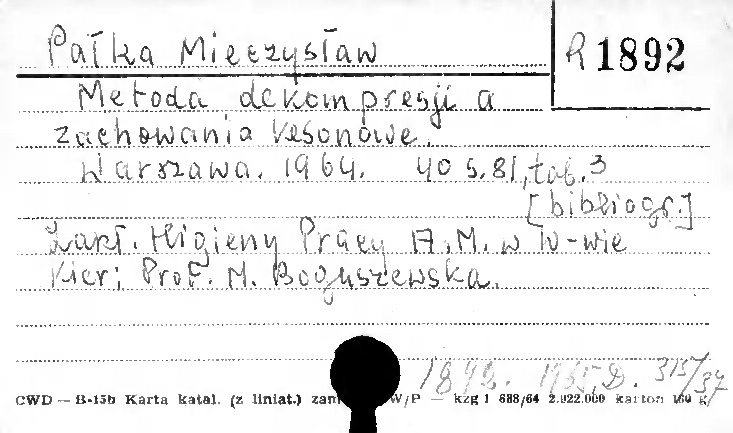 Pałka Mieczysław
R 1892
Metoda dekompresji a
zachowania kesonowe.
Warszawa. 1964. 40 s. 81, tab. 3
[bibliogr.]
Zakł. Higieny Pracy A.M. w W-wie
Kier: Prof. M. Boguszewska.
1892. 1965. D. 315/37
CWD — B-15b Karta katal. (z liniat.) zam W/P — kzg 1 688/64 2.922.000 karton 160 g/